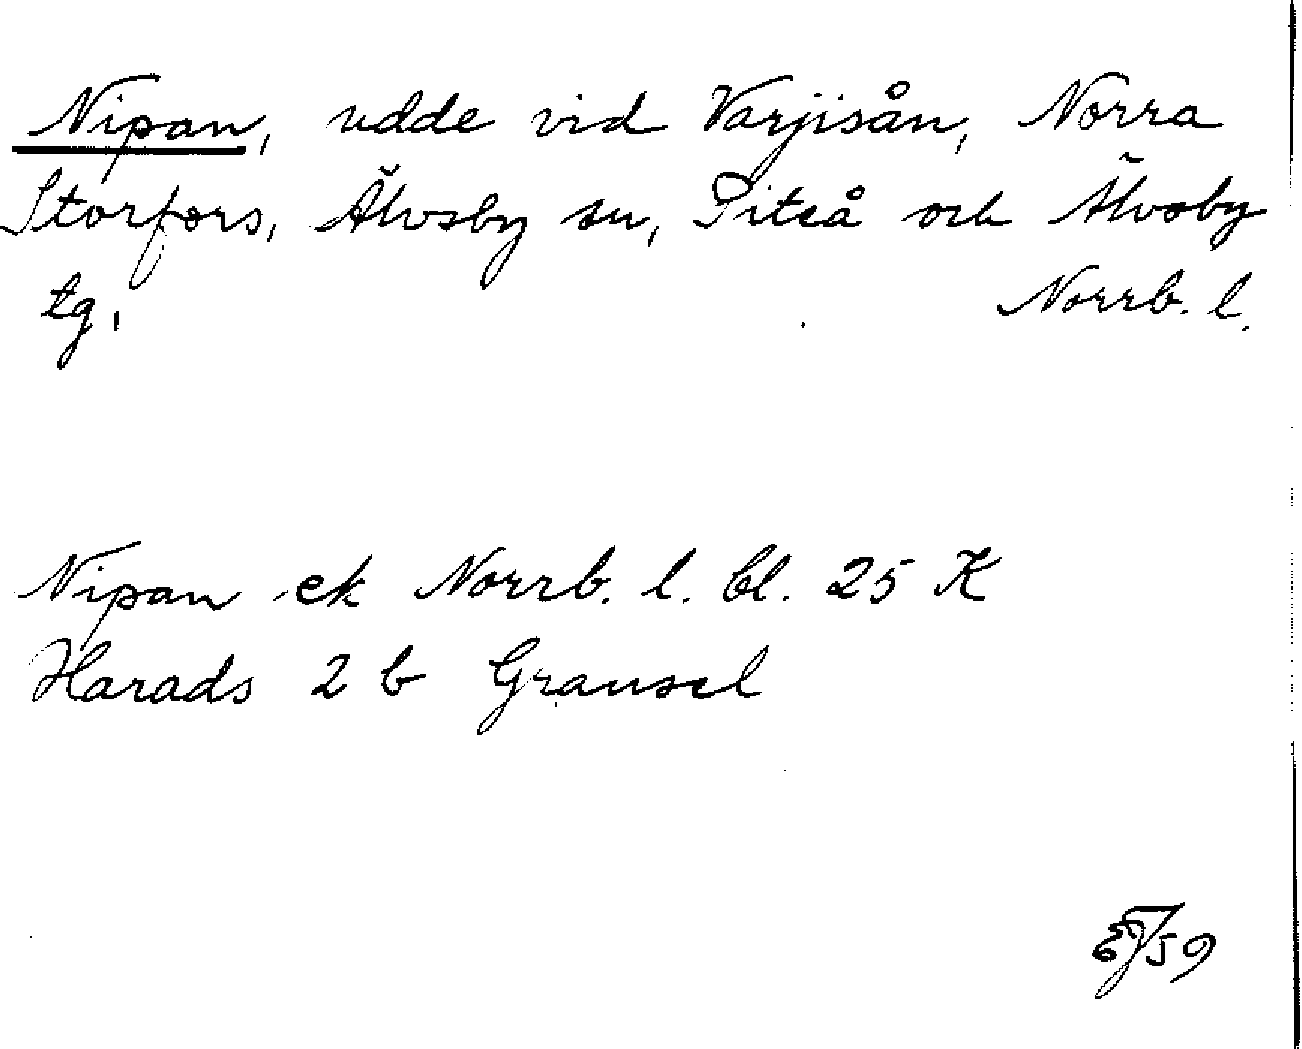 Nipan, udde vid Varjisån, Norra
Storfors, Älvsby sn, Piteå och Älvsby
tg, Norrb. l.
Nipan ek Norrb. l. bl. 25 K
Harads 2 b Gransel
EJ 59